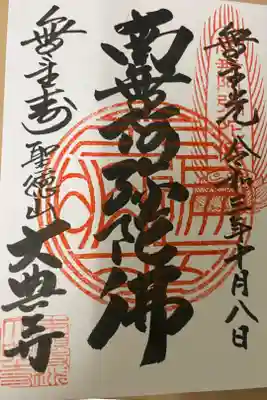 無量光 令和二年十月八日
南無阿弥陀佛
無量寿 聖徳山 大典寺